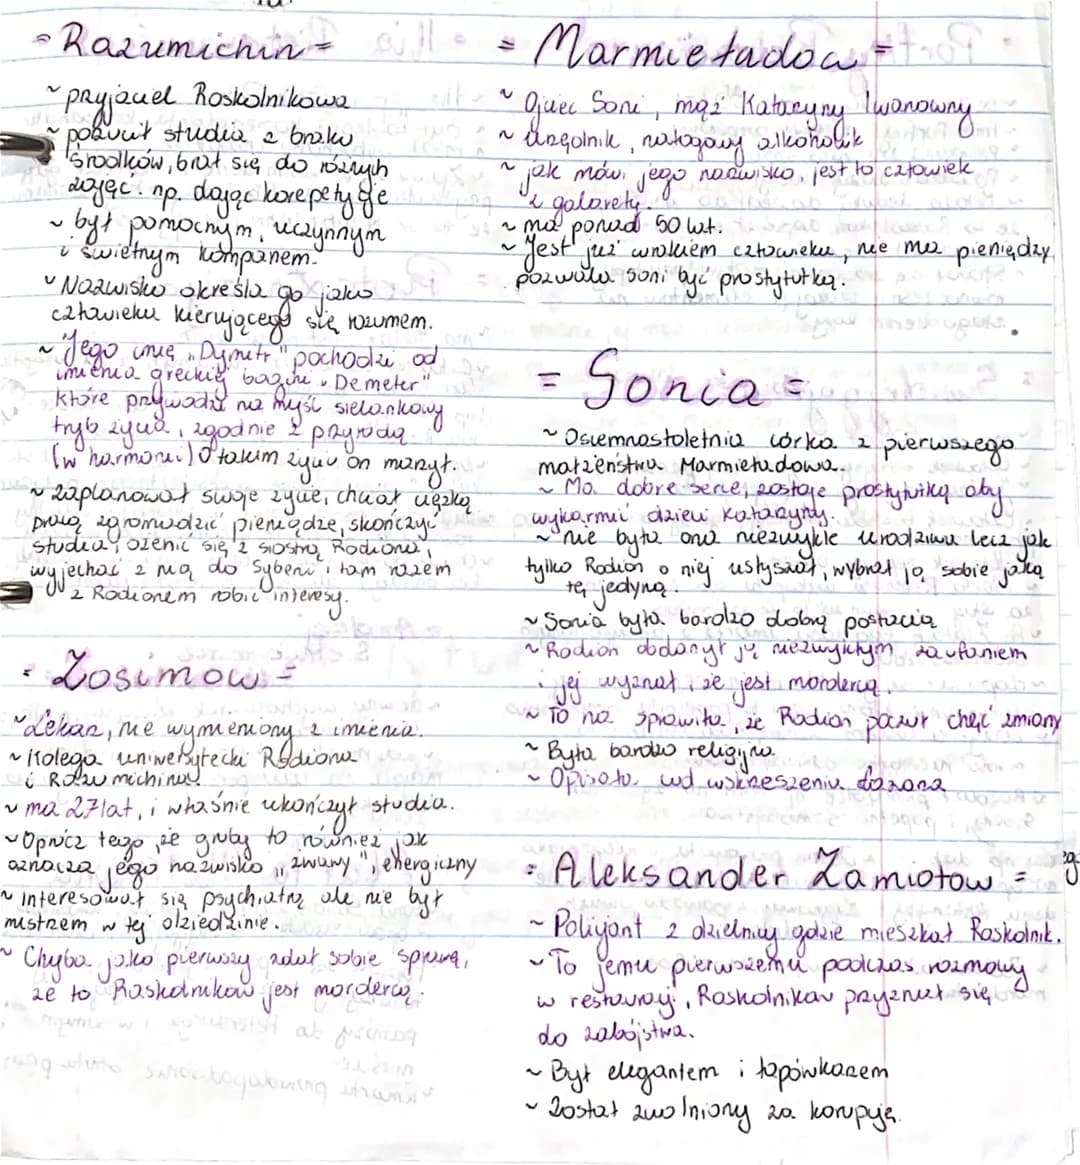 = Razumichin =
~ pryjaciel Roskolnikowa
~ porzucił studia z braku
środków, brał się do różnych
zajęć np. dając korepetycje
~ był pomocnym, uczynnym
i świetnym kompanem.
~ Nazwisko określa go jako
człowieka kierującego się rozumem.
~ Jego imię "Dymitr" pochodzi od
imienia greckiej bogini "Demeter"
które przywodzi na myśl sielankowy
tryb życia, zgodnie z przyrodą
(w harmonii) O takim życiu on marzył.
~ zaplanował swoje życie, chciał ciężką
pracą zgromadzić pieniądze, skończyć
studia, ożenić się z siostrą Rodiona,
wyjechać z nią do Syberii i tam razem
z Rodionem robić interesy.
= Zosimow =
~ Lekarz, nie wymieniony z imienia.
~ Kolega uniwersytecki Rodiona
i Razumichina.
~ ma 27 lat, i właśnie ukończył studia.
~ Oprócz tego, że gruby to również jak
oznacza jego nazwisko "żwawy", energiczny
~ interesował się psychiatrią ale nie był
mistrzem w tej dziedzinie.
~ Chyba jako pierwszy zdał sobie sprawę,
że to Raskolnikow jest mordercą.
= Marmieładow =
~ Ojciec Soni, mąż Katarzyny Iwanowny
~ Urzędnik, nałogowy alkoholik
~ jak mówi jego nazwisko, jest to człowiek
z galarety.
~ ma ponad 50 lat.
~ Jest już wrakiem człowieka, nie ma pieniędzy,
pozwala Soni być prostytutką.
= Sonia =
~ Osiemnastoletnia córka z pierwszego
małżeństwa Marmieładowa.
~ Ma dobre serce, zostaje prostytutką aby
wykarmić dzieci Katarzyny.
~ nie była ona niezwykle urodziwa lecz jak
tylko Rodion o niej usłyszał, wybrał ją sobie jako
tę jedyną.
~ Sonia była bardzo dobrą postacią
~ Rodion obdarzył ją niezwykłym zaufaniem
i jej wyznał, że jest mordercą.
~ To ona sprawiła, że Rodion poczuł chęć zmiany
~ Była bardzo religijna
~ Opisała cud wskrzeszenia Łazarza
= Aleksander Zamiotow =
~ Policjant z dzielnicy gdzie mieszkał Raskolnik.
~ To jemu pierwszemu podczas rozmowy
w restauracji, Raskolnikow przyznał się
do zabójstwa.
~ Był elegantem i łapówkarzem
~ Został zwolniony za korupcję.